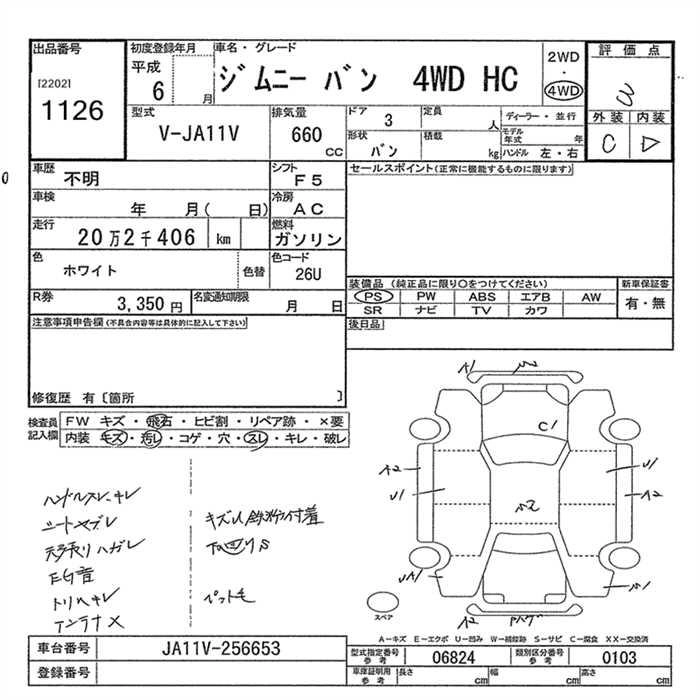 出品番号
[2202]
1126
初度登録年月
平成
6
月
車名・グレード
ジムニー バン 4WD HC
2WD
・
4WD
評価点
3
外装 内装
C D
型式
V-JA11V
排気量
660
cc
ドア
3
定員
人
ディーラー・並行
形状
バン
積載
kg
モデル年式
年
ハンドル 左・右
車歴
不明
シフト
F5
車検
年 月( 日)
冷房
AC
走行
20万2千406 km
燃料
ガソリン
色
ホワイト
色替
色コード
26U
R券
3,350 円
名変通知期限
月 日
セールスポイント(正常に機能するものに限ります)
装備品 (純正品に限り○をつけてください)
PS PW ABS エアB AW
SR ナビ TV カワ
新車保証書
有・無
後日品
注意事項申告欄(不具合内容等は具体的に記入して下さい)
修復歴 有〔箇所 〕
検査員記入欄
FW キズ・飛石・ヒビ割・リペア跡・×要
内装 キズ・汚レ・コゲ・穴・スレ・キレ・破レ
ハンドルスレ・キレ
シートヤブレ
天張りハガレ
EG音
トリムキレ
アンテナ×
キズU鉄粉付着
下回りS
ペット毛
A1
C1
A2
U1
U1
A2
A2
スペア
A-キズ E-エクボ U-凹み W-補修跡 S-サビ C-腐食 XX-交換済
車台番号
JA11V-256653
登録番号
型式指定番号
参考
06824
類別区分番号
参考
0103
車庫証明用
参考
長さ
cm
幅
cm
高さ
cm